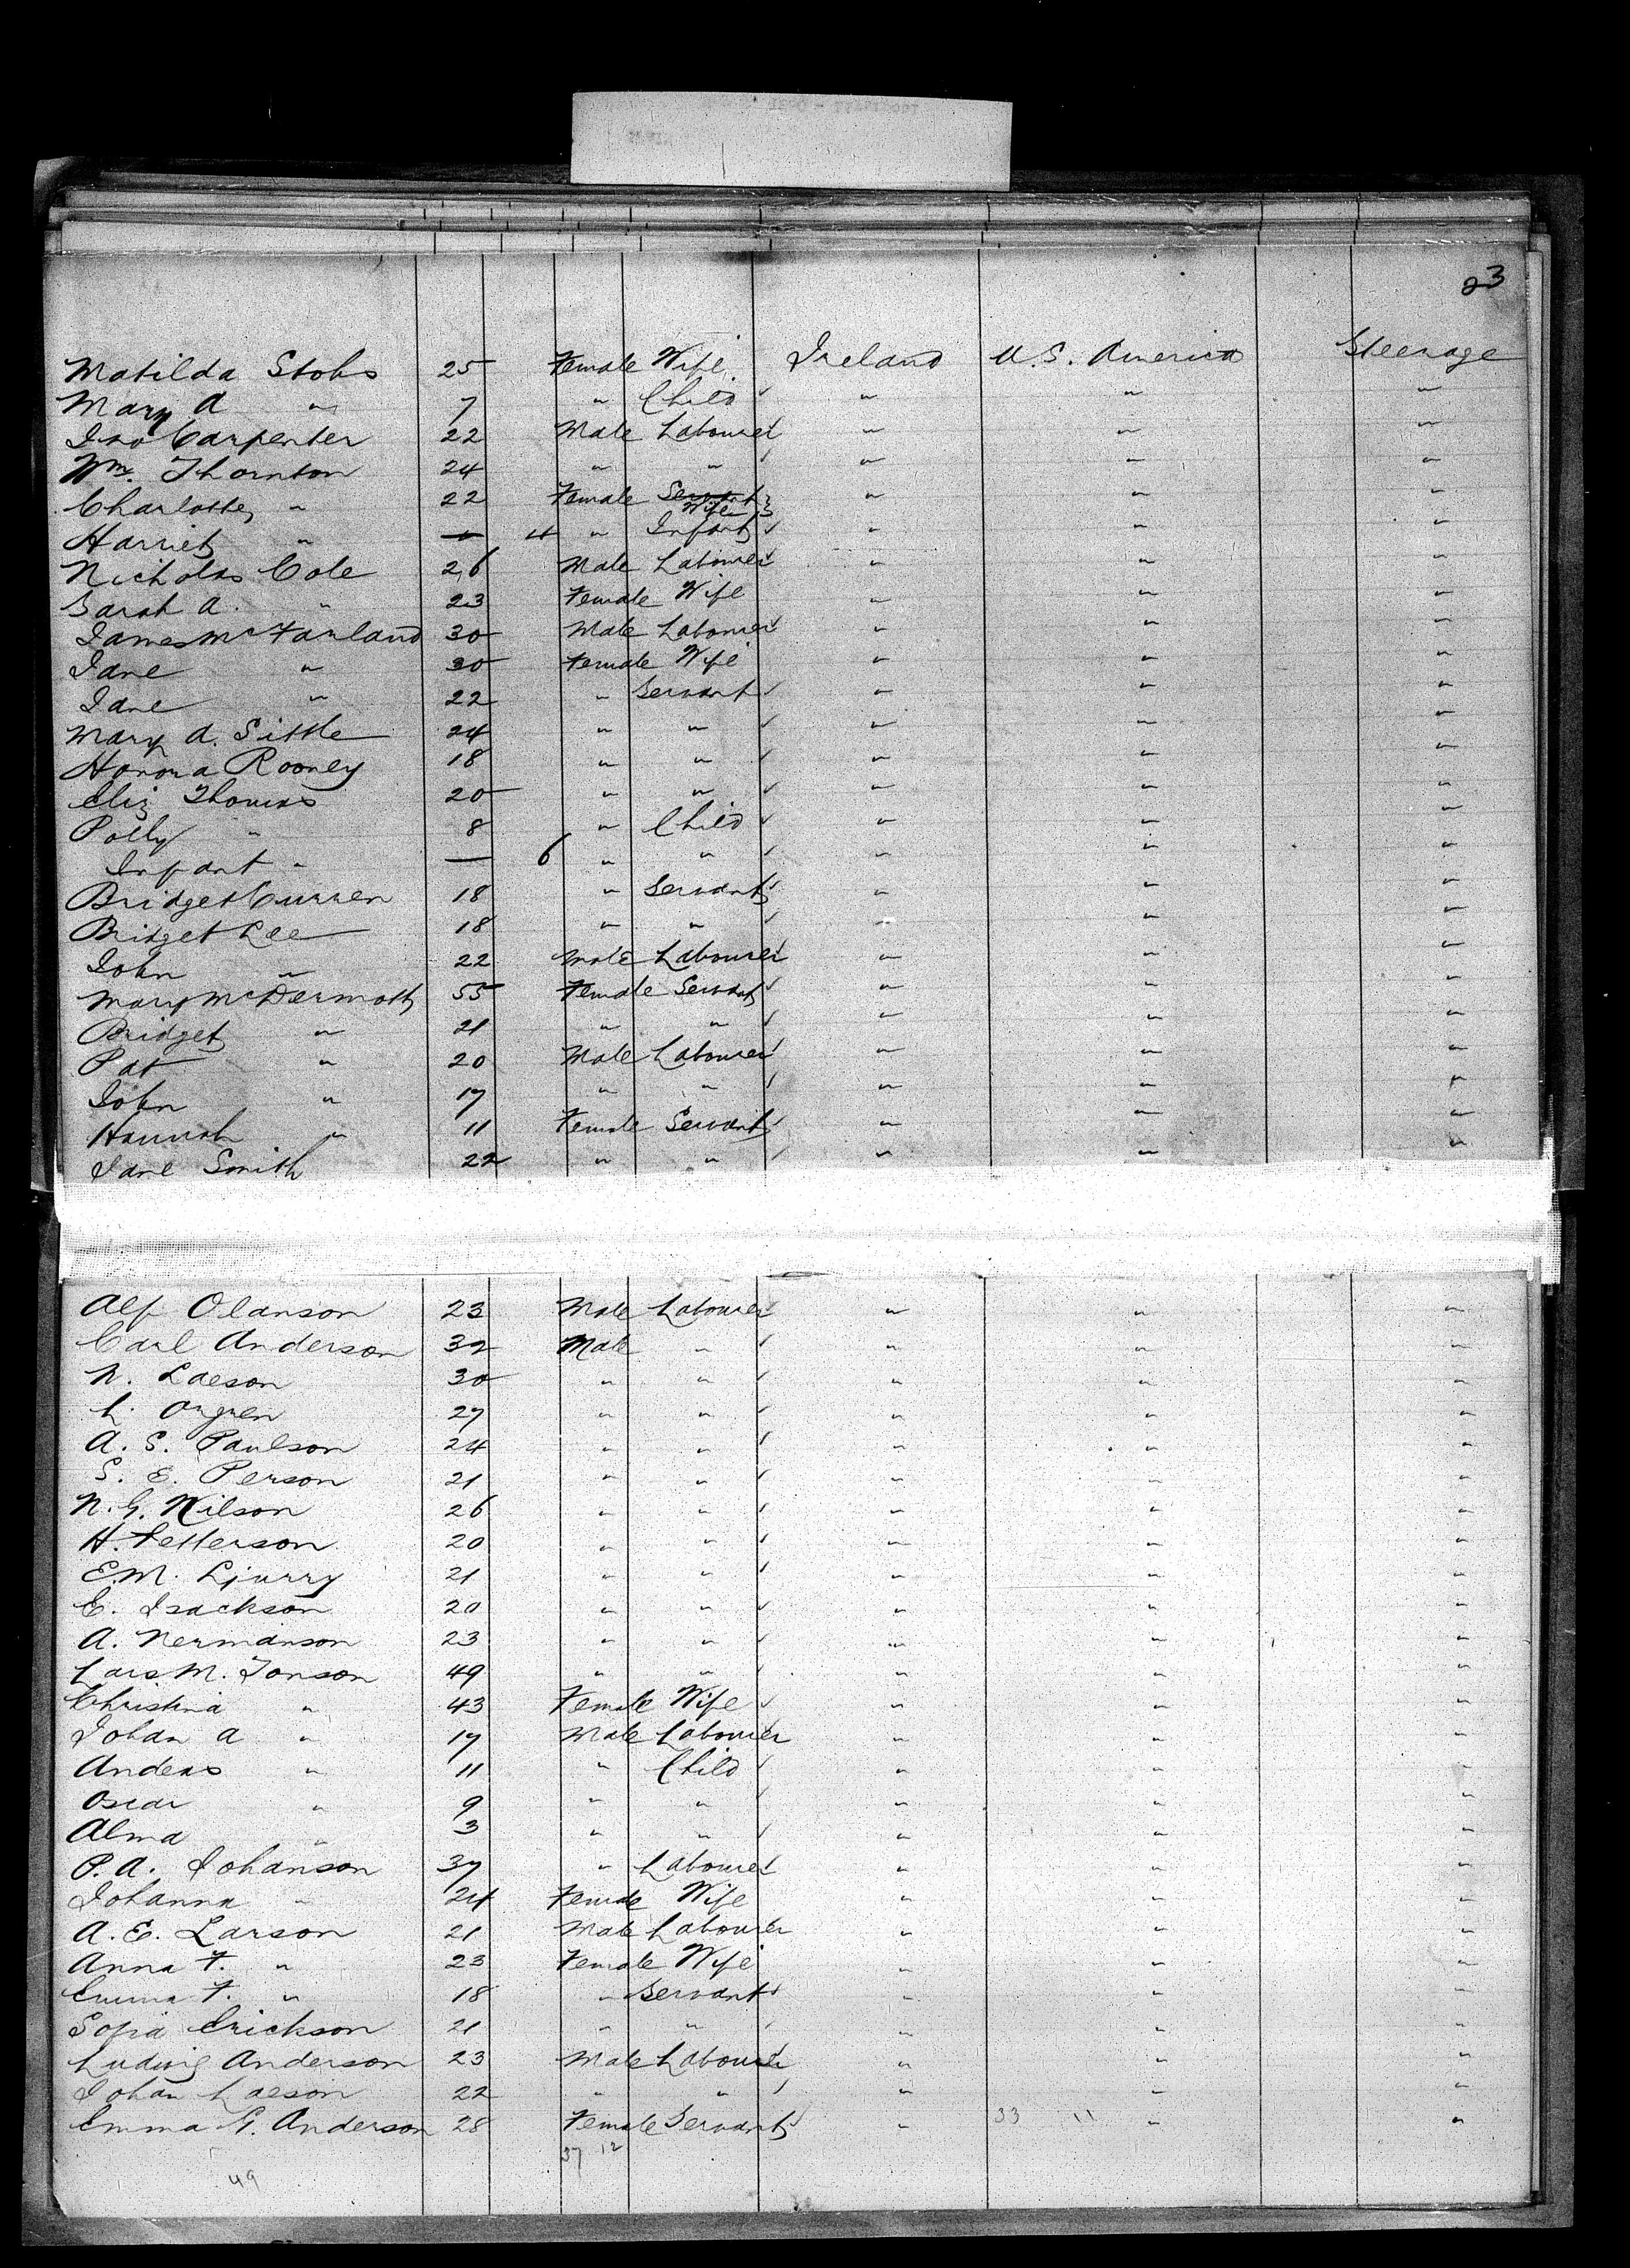 23
Matilda Stobs 25 Female Wife Ireland U.S. America Steerage
Mary A " 7 " Child " " "
Jno Carpenter 22 Male Labourer " " "
Wm. Thornton 24 " " " " "
Charlotte " 22 Female Servant Wife " " "
Harriet " — 4 " Infant " " "
Nicholas Cole 26 Male Labourer " " "
Sarah A. " 23 Female Wife " " "
James McFarland 30 Male Labourer " " "
Jane " 30 Female Wife " " "
Jane " 22 " Servant " " "
Mary A. Little 24 " " " " "
Honora Rooney 18 " " " " "
Eliz Thomas 20 " " " " "
Polly " 8 " Child " " "
Infant " — 6 " " " " "
Bridget Curren 18 " Servant " " "
Bridget Lee 18 " " " " "
John " 22 Male Labourer " " "
Mary McDermott 55 Female Servant " " "
Bridget " 21 " " " " "
Pat " 20 Male Labourer " " "
John " 17 " " " " "
Hannah " 11 Female Servant " " "
Jane Smith 22 " " " " "
Alf Olanson 23 Male Labourer " " "
Carl Anderson 32 Male " " " "
N. Laeson 30 " " " " "
L. 27 " " " " "
A. S. Paulson 24 " " " " "
S. E. Person 21 " " " " "
N. G. Nilson 26 " " " " "
H. Petterson 20 " " " " "
E.M. Ljurry 21 " " " " "
E. Isackson 20 " " " " "
A. Nermanson 23 " " " " "
Lars M. Jonson 49 " " " " "
Christina " 43 Female Wife " " "
Johan A " 17 Male Labourer " " "
Andeas " 11 " Child " " "
Oscar " 9 " " " " "
Alma " 3 " " " " "
P. A. Johanson 37 " Labourer " " "
Johanna " 24 Female Wife " " "
A. E. Larson 21 Male Labourer " " "
Anna F. " 23 Female Wife " " "
Emma F. " 18 " Servant " " "
Sofia Erickson 21 " " " " "
Ludwig Anderson 23 Male Labourer " " "
Johan Laeson 22 " " " " "
Emma G. Anderson 28 Female Servant " 33 11 " "
37 12
49